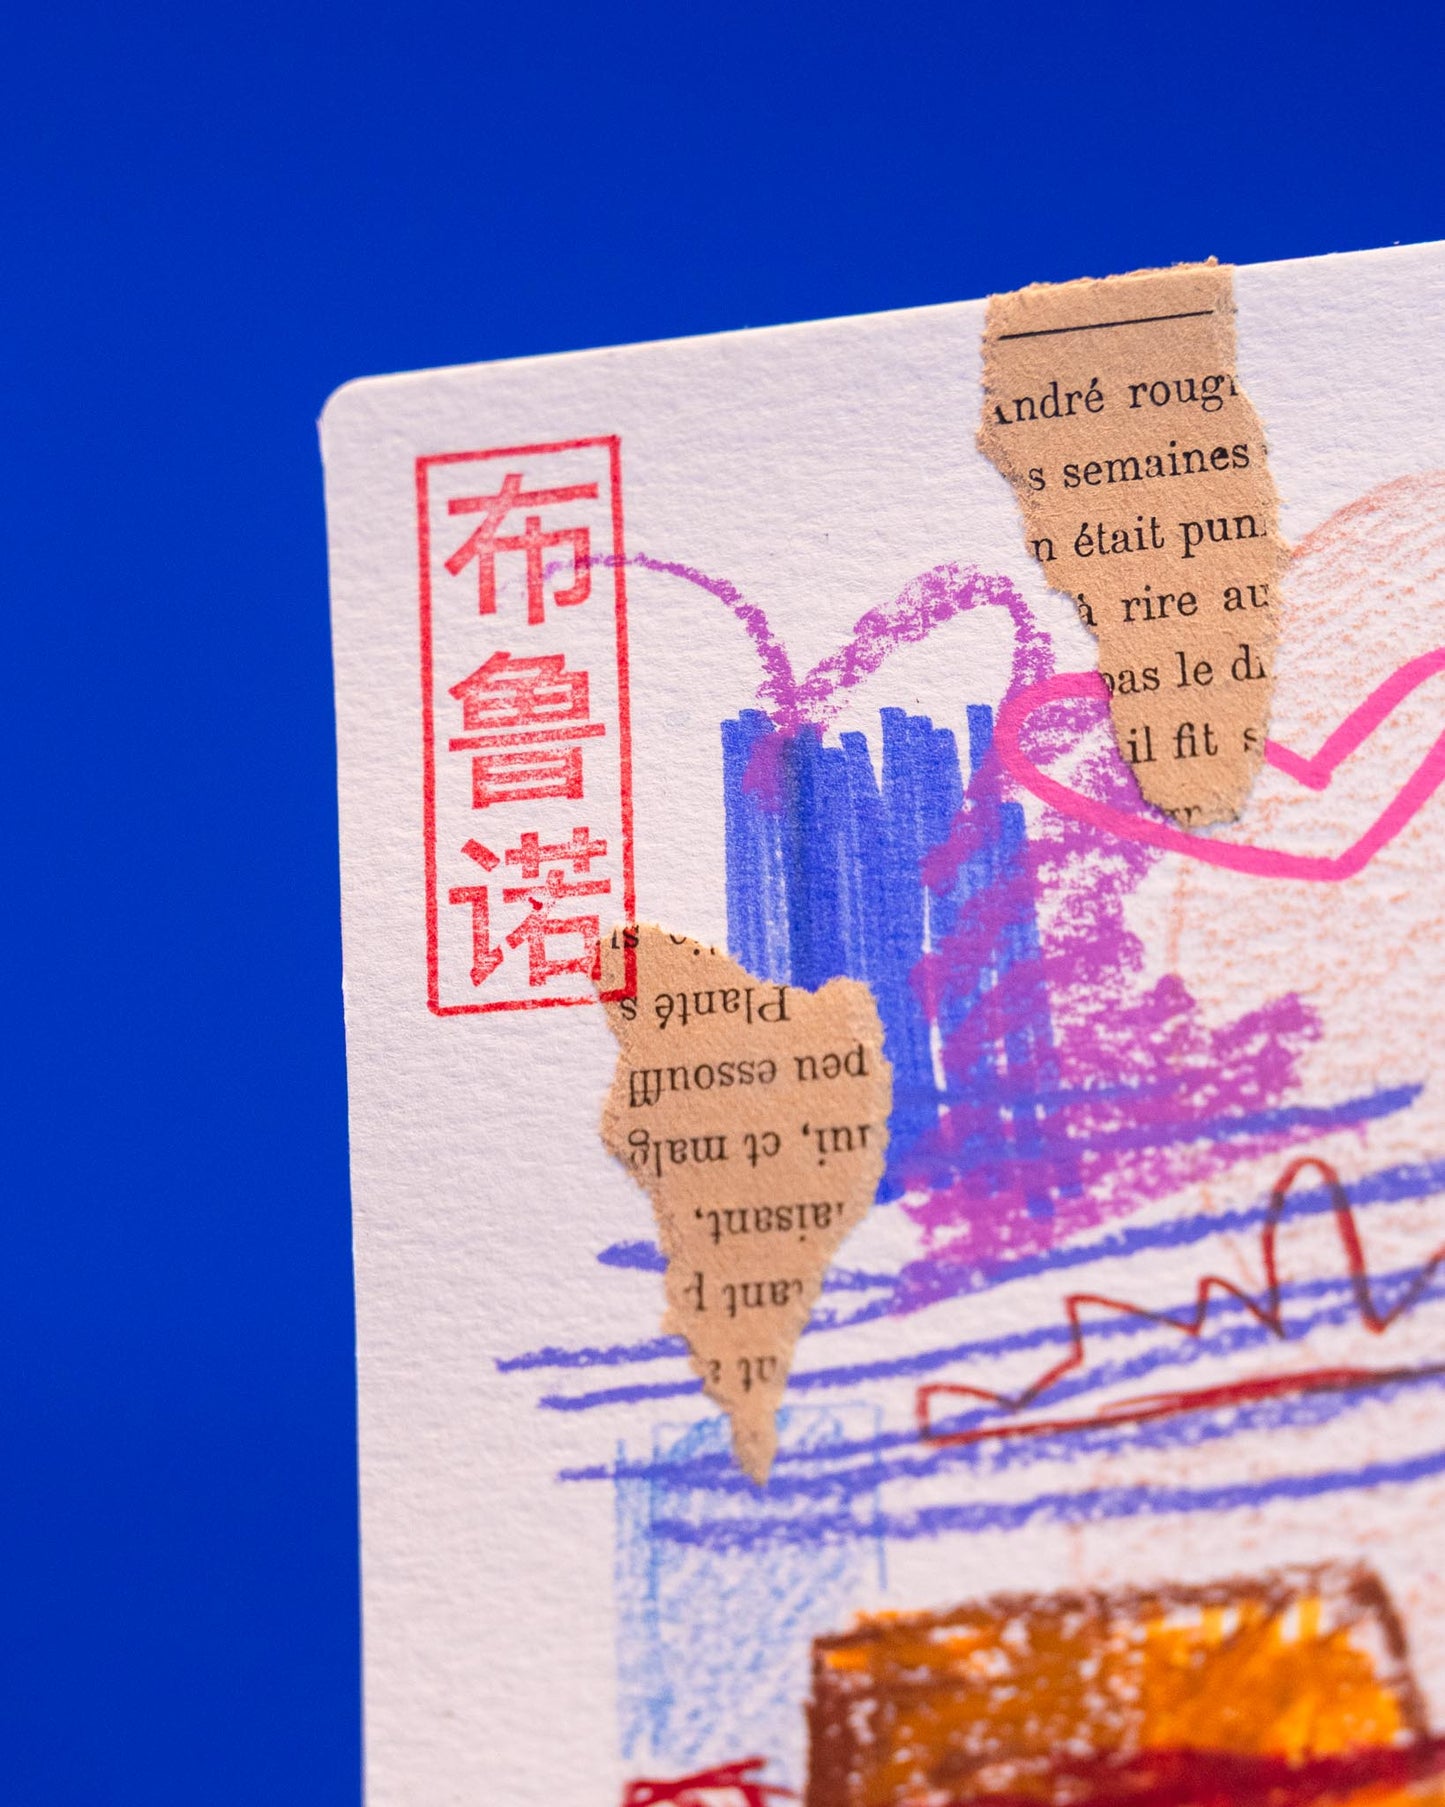 布鲁诺
ndré roug
s semaines
n était pun
à rire au
pas le d
il fit s
Planté s
peu essouffl
lui, et malg
aisant,
tant p